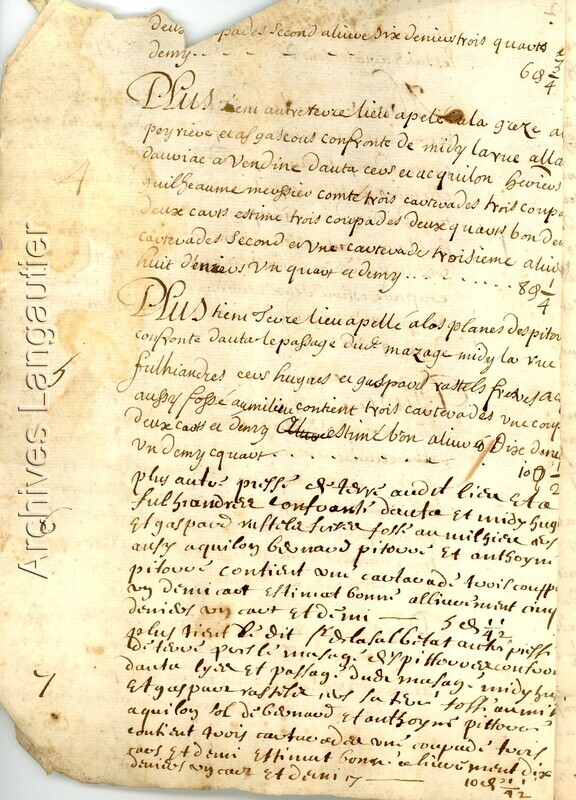 pades second alivre six deniers trois quarts
demy
6 d 3/4
Plus tient autre terre lieu apelé a la greze a
peyrieve et as gascous confronte de midy la rue alla
dauriac a vendine dauta cers et acquilon herities
guilheaume messier comte trois carterades trois coupa
deux carts estime trois coupades deux quarts bon deu
carterades second et une carterade troisieme alivre
huit deniers un quart et demy
8 d 1/4
4
Plus tient terre lieu apellé a los planes despitor
confronte dauta le passage dud mazage midy la rue
fulhiandres cers hugues et gaspard rastels freres a
aussy fossé au milieu contient trois carterades une coup
deux carts et demy estimé bon alivre Dix den
un demy cquart
10 d 1/2
5
plus autre piesse de terre audit lieu et a
fulhiandres confronte dauta et midy hug
et gaspard rastels freres fosse au milhieu cers
ausy aquilon bernard pitorre et anthoyne
pitorre contient une carterade trois couppa
un demi cart estimat bonne allivrement cinq
deniers un cart et demi — 5 d
plus tient le dit Sr de lasalbetat autre piesse
de terre pers le masage de pittorre confron
dauta lyere et passage dud masage midy hu
et gaspar rastels cers sa terre fosse au mi
aquilon sol de bernard et anthoyne pittorre
contient trois carterades une coupade trois
cars et demi estimat bonne alivrement dix
deniers un cart et demi — 10 d
7
Archives Langautier